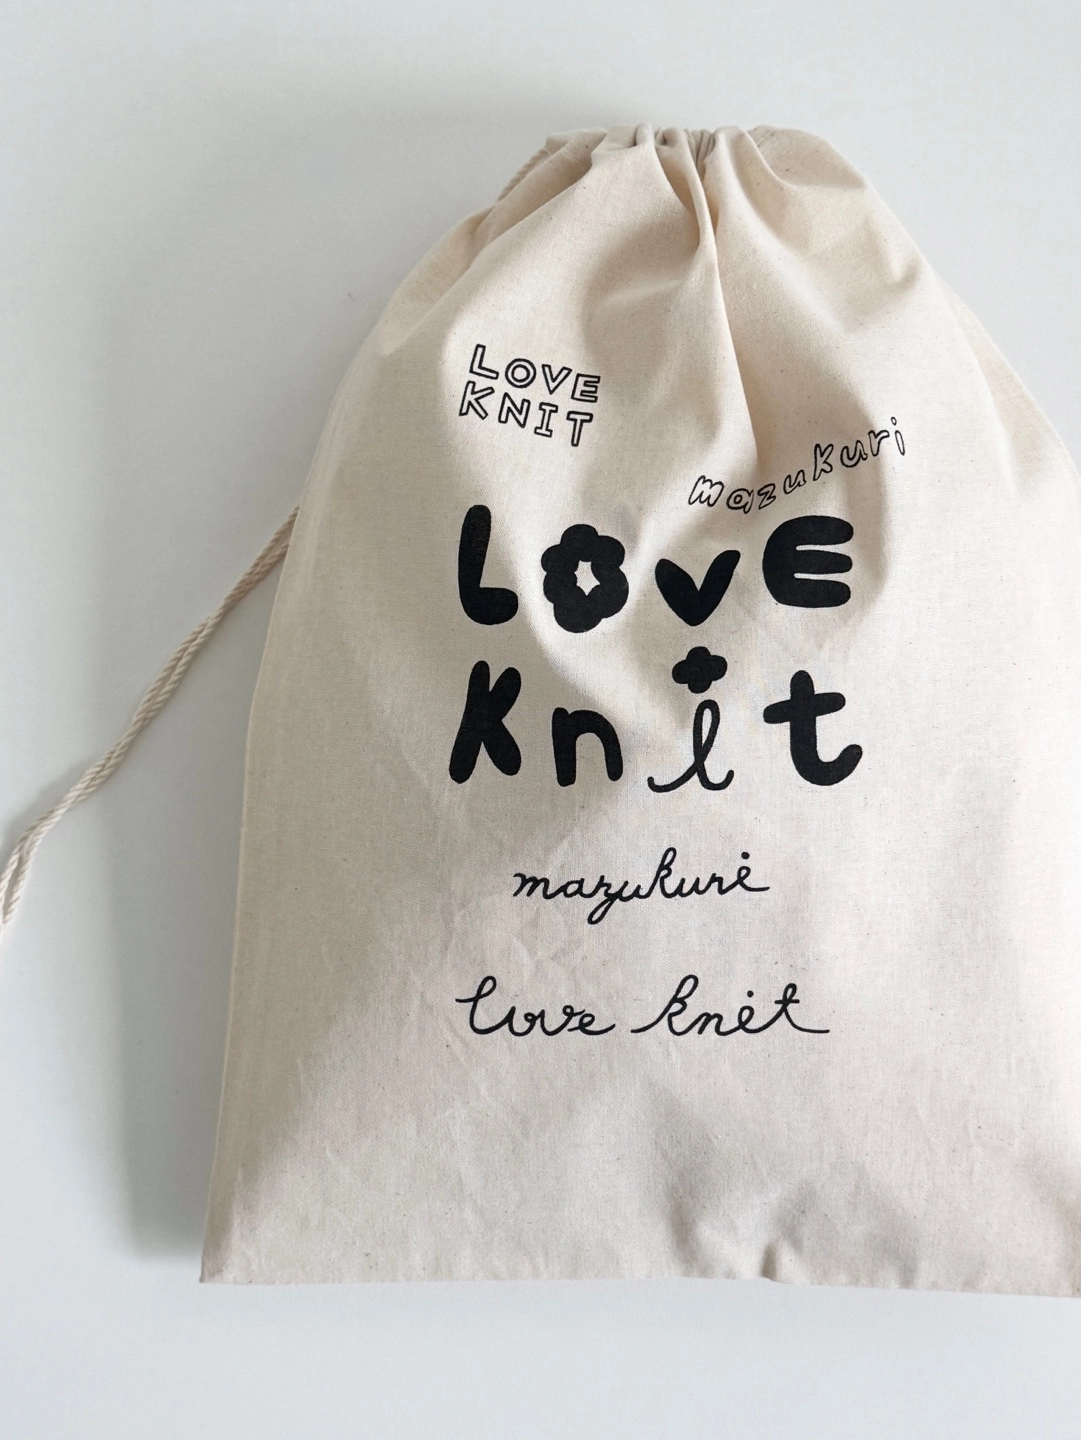 LOVE
KNIT
mazukuri
LOVE
Knit
mazukuri
love knit